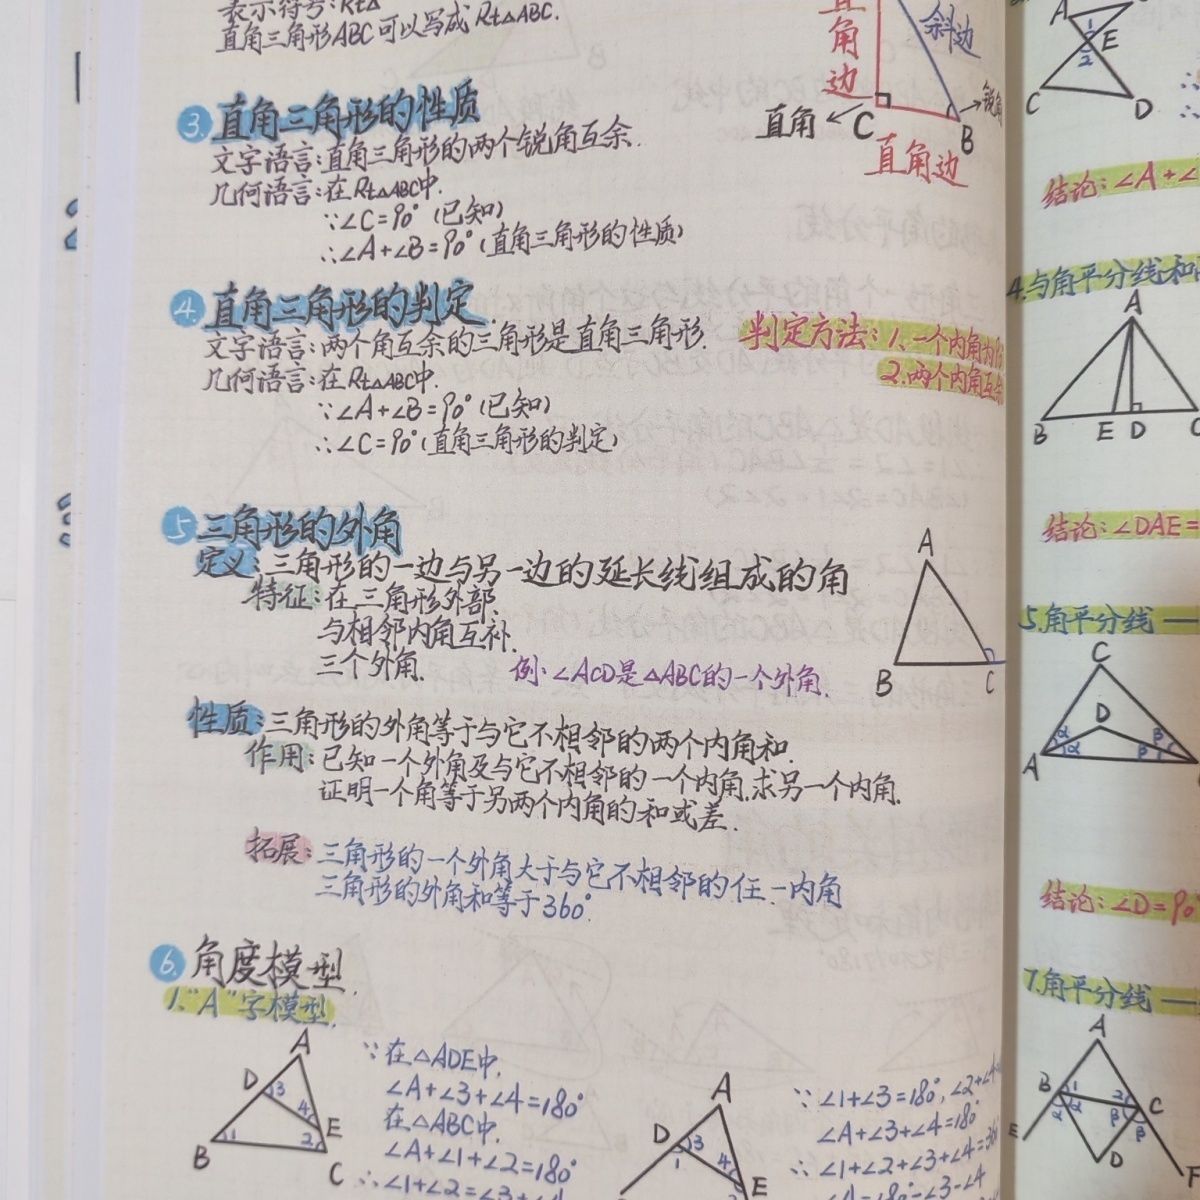 表示符号:Rt△
直角三角形ABC可以写成Rt△ABC.
直角边
斜边
直角
C
B
锐角
直角边
3.直角三角形的性质
文字语言:直角三角形的两个锐角互余.
几何语言:在Rt△ABC中.
∵∠C=90°(已知)
∴∠A+∠B=90°(直角三角形的性质)
4.直角三角形的判定.
文字语言:两个角互余的三角形是直角三角形.
几何语言:在Rt△ABC中.
∵∠A+∠B=90°(已知)
∴∠C=90°(直角三角形的判定)
判定方法:1.一个内角为
2.两个内角互余
5.三角形的外角
定义:三角形的一边与另一边的延长线组成的角
特征:在三角形外部.
与相邻内角互补.
三个外角.
例:∠ACD是△ABC的一个外角.
A
B
C
性质:三角形的外角等于与它不相邻的两个内角和.
作用:已知一个外角及与它不相邻的一个内角.求另一个内角.
证明一个角等于另两个内角的和或差.
拓展:三角形的一个外角大于与它不相邻的任一内角
三角形的外角和等于360°.
6.角度模型.
1."A"字模型.
A
D 3
4
E
1
2
B
C
∵在△ADE中,
∠A+∠3+∠4=180°
在△ABC中.
∠A+∠1+∠2=180°
∴∠1+∠2=∠3+∠4
A
D 3
1
4
2
E
∵∠1+∠3=180°,∠2+∠4
∠A+∠3+∠4=180°
∴∠1+∠2+∠3+∠4=36
∠A=180°-∠3-∠4
A
1
E
2
C
D
结论:∠A+∠
4.与角平分线和
A
B
E
D
C
结论:∠DAE=
5.角平分线—
C
D
α
α
β
β
A
结论:∠D=90°
7.角平分线—
A
B
1
2
α
α
2
β
β
C
E
D
F